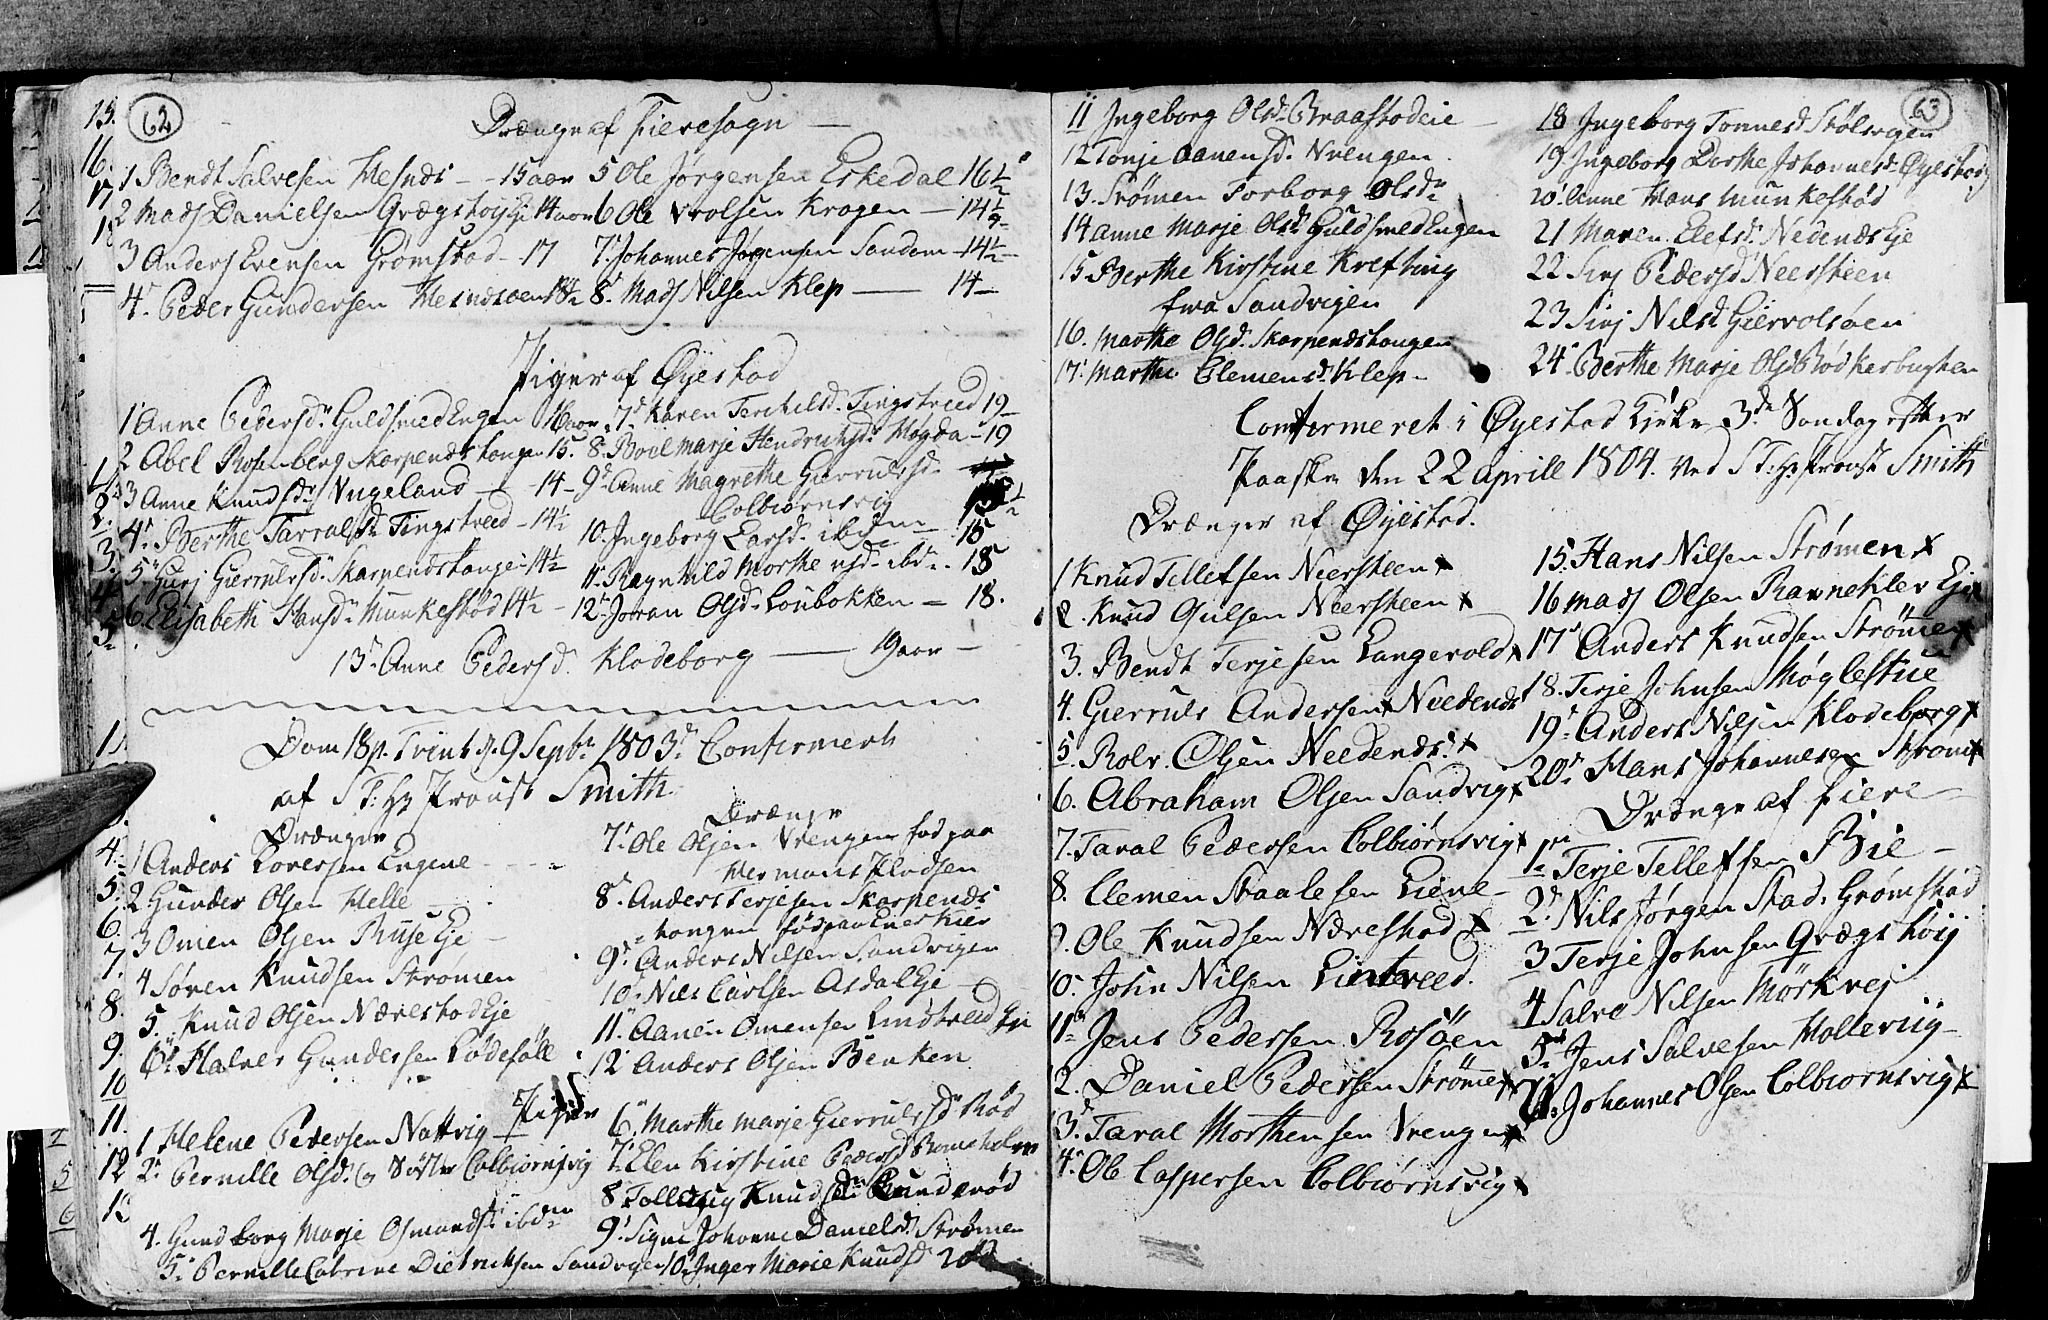 62
Drænge af Fieresogn
1 Bendt Salvesen Hesnæs - 15 aar
2 Mads Danielsen Grægshøig Eje 14 aar
3 Anders Evensen Grømstad - 17
4. Peder Gundersen
5 Ole Jørgensen Eskedal 16 1/2
6 Ole Vrolsen Krogen - 14 1/2
7. Johannes Jørgensen Sandem - 14 1/2
8. Mads Nilsen Klep - 14 -
Piger af Øyestad
1 Anne Pedersd. GuldsmedEngen 16 aar
2 Abel Rosenberg Skarpenæshougen 15.
3 Anne Knudsd. Vugeland - 14 -
4. Berthe Tarralsd. Tingstveed - 14 1/2
5. Gurj Gierrulsd. Skarpenæshouge - 14 1/2
6. Elisabeth Hansd. Munkestød 14 1/2
7. Karen Terchilsd. Tingstveed 19 -
8. Boel Marje Hendrichsd. Mogda - 19
9. Anne Magrethe Gierrulsd.
Colbiørnsvig
10. Ingeborg Larsd. ibdm - 15
11. Ragnhild Morthensd. ibd. 18
12. Joran Olsd. Loubokken - 18.
13. Anne Pedersd. Klodeborg - 19 aar -
Dom 18 p. Trinit d. 9 Septbr 1803 Confirmert
af S T: Hr Proust Smith.
Drænger
1 Anders Torersen Engene
2 Gunder Olsen Helle
3 Omen Olsen Ruse Eje -
4 Søren Knudsen Strømen
5. Knud Olsen Nærestad Eje
6. Halver Gundersen Rødesøll
Drænge
7. Ole Olsen Vrengen fød paa
Hermans Plodsen
8. Anders Terjesen Skarpenæs
hougen fød paa Eneskier
9. Anders Nilsen Sandvigen
10. Nils Carlsen Asdal Eje
11. Aanen Omensen Lindtveed Eje
12 Anders Olsen Benken
Piger
1 Helene Pedersen Nattvig
2. Pernille Olsd. og Søster Colbiørnsvig
4. Gundborg Marje Osmundsd. ibdm
5. Pernille Catrine Dietrichsen Sandvigen
6. Marthe Marje Gierrulsd. Rød
7. Elen Kirstine Pedersd. Romeholmen
8. Tollevig Knudsd. Runderød
9. Signe Johanne Danielsd. Strømen
10. Inger Marie Knudsd.
63
11 Ingeborg Olsd. Braastad eie
12 Tonje Aanensd. Vrengen.
13. Strømen Torborg Olsd.
14 Anne Marje Olsd. GuldsmedEngen
15 Berthe Kirstine Krefting
fra Sandvigen
16. Marthe Olsd. Skarpenæshougen
17. Marthe Clemensd. Klep -
18 Ingeborg Tonnesd. Stølsvigen
19. Ingeborg Dorthe Johannesd. Øyestad
20. Anne Hans Munkestød
21 Maren Elefsd. Nedenæs Eje
22. Sirj Pedersd. Neersteen
23 Sirj Nilsd. Giervolsøen
24. Berthe Marje Olsd. Rødkerbugten
Confirmeret i Øyestad Kirke 3die Søndag efter
Paaske den 22 Aprill 1804. Ved S T: Hr Proust Smith
Drænger af Øyestad.
1 Knud Tellefsen Neersteen x
2. Knud Gulsen Neersteen x
3. Bendt Terjesen Langevold x
4. Gierruls Andersen x Needenæs
5. Rolv. Olsen Needenæs. x
6. Abraham Olsen Sandvig x
7. Taral Pedersen Colbiørnsvig x
8. Clemen Staalesen Liene -
9. Ole Knudsen Nærestad x
10. John Nilsen Lintveed.
11. Jens Pedersen Rosøen
12. Daniel Pedersen Strømen x
13. Taral Morthensen Vrengen x
14. Ole Caspersen Colbiørnsvig x
15. Hans Nilsen Strømen x
16 Mads Olsen Ravnekler Eje x
17. Anders Knudsen Strømen x
18. Terje Johnsen Møglestue
19. Anders Nilsen Klodeborg x
20. Hans Johannesen Strøm x
Drænge af Fiere
1. Terje Tellefsen Bie -
2. Nils Jørgen Stad. Grømstad
3 Terje Johnsen Grægshøig
4 Salve Nilsen Mörkvej
5. Jens Salvesen Hollevig -
21. Johannes Olsen Colbiørnsvig x